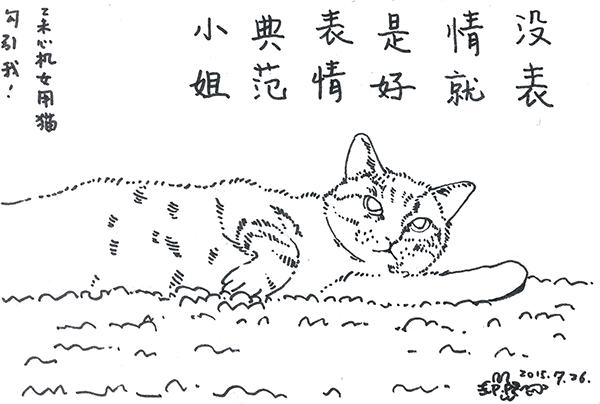 没表
情就
是好
表情
典范
小姐
心机女用猫
勾引我！
2015.7.26.